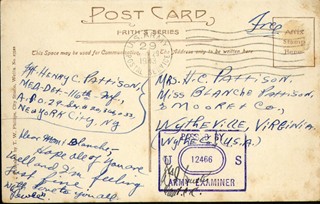 POST CARD
FRITH'S SERIES
This Space may be used for Correspondence.
The Address only to be written here.
Free
Affix
Stamp
Here
29
HENRY C. PATTISON,
MED. DET. 116th INF.,
A.P.O. 29
NEW YORK CITY, NY
Dear Mom & Blanche,
Hope all of you are
well and I'm feeling
just fine.
MRS. H. C. PATTISON,
MISS BLANCHE PATTISON,
MOORE & CO.,
WYTHEVILLE, VIRGINIA
(U.S.A.)
PASSED BY
U S
12466
ARMY EXAMINER